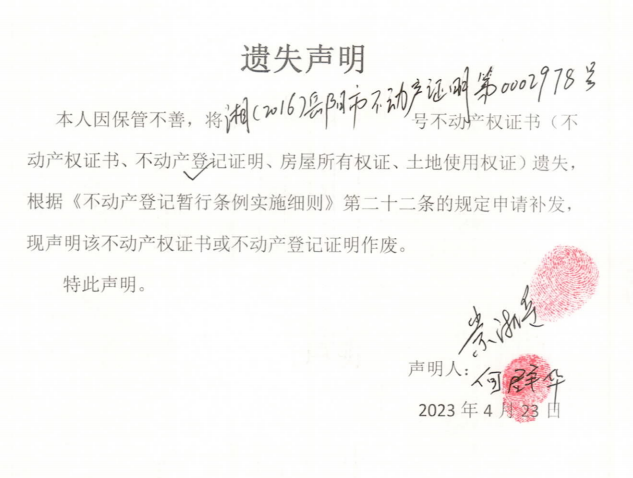 遗失声明
湘(2016)岳阳市不动产证明第0002978号
本人因保管不善，将 号不动产权证书（不
动产权证书、不动产登记证明、房屋所有权证、土地使用权证）遗失，
根据《不动产登记暂行条例实施细则》第二十二条的规定申请补发，
现声明该不动产权证书或不动产登记证明作废。
特此声明。
声明人：何群华
2023 年 4 月 23 日